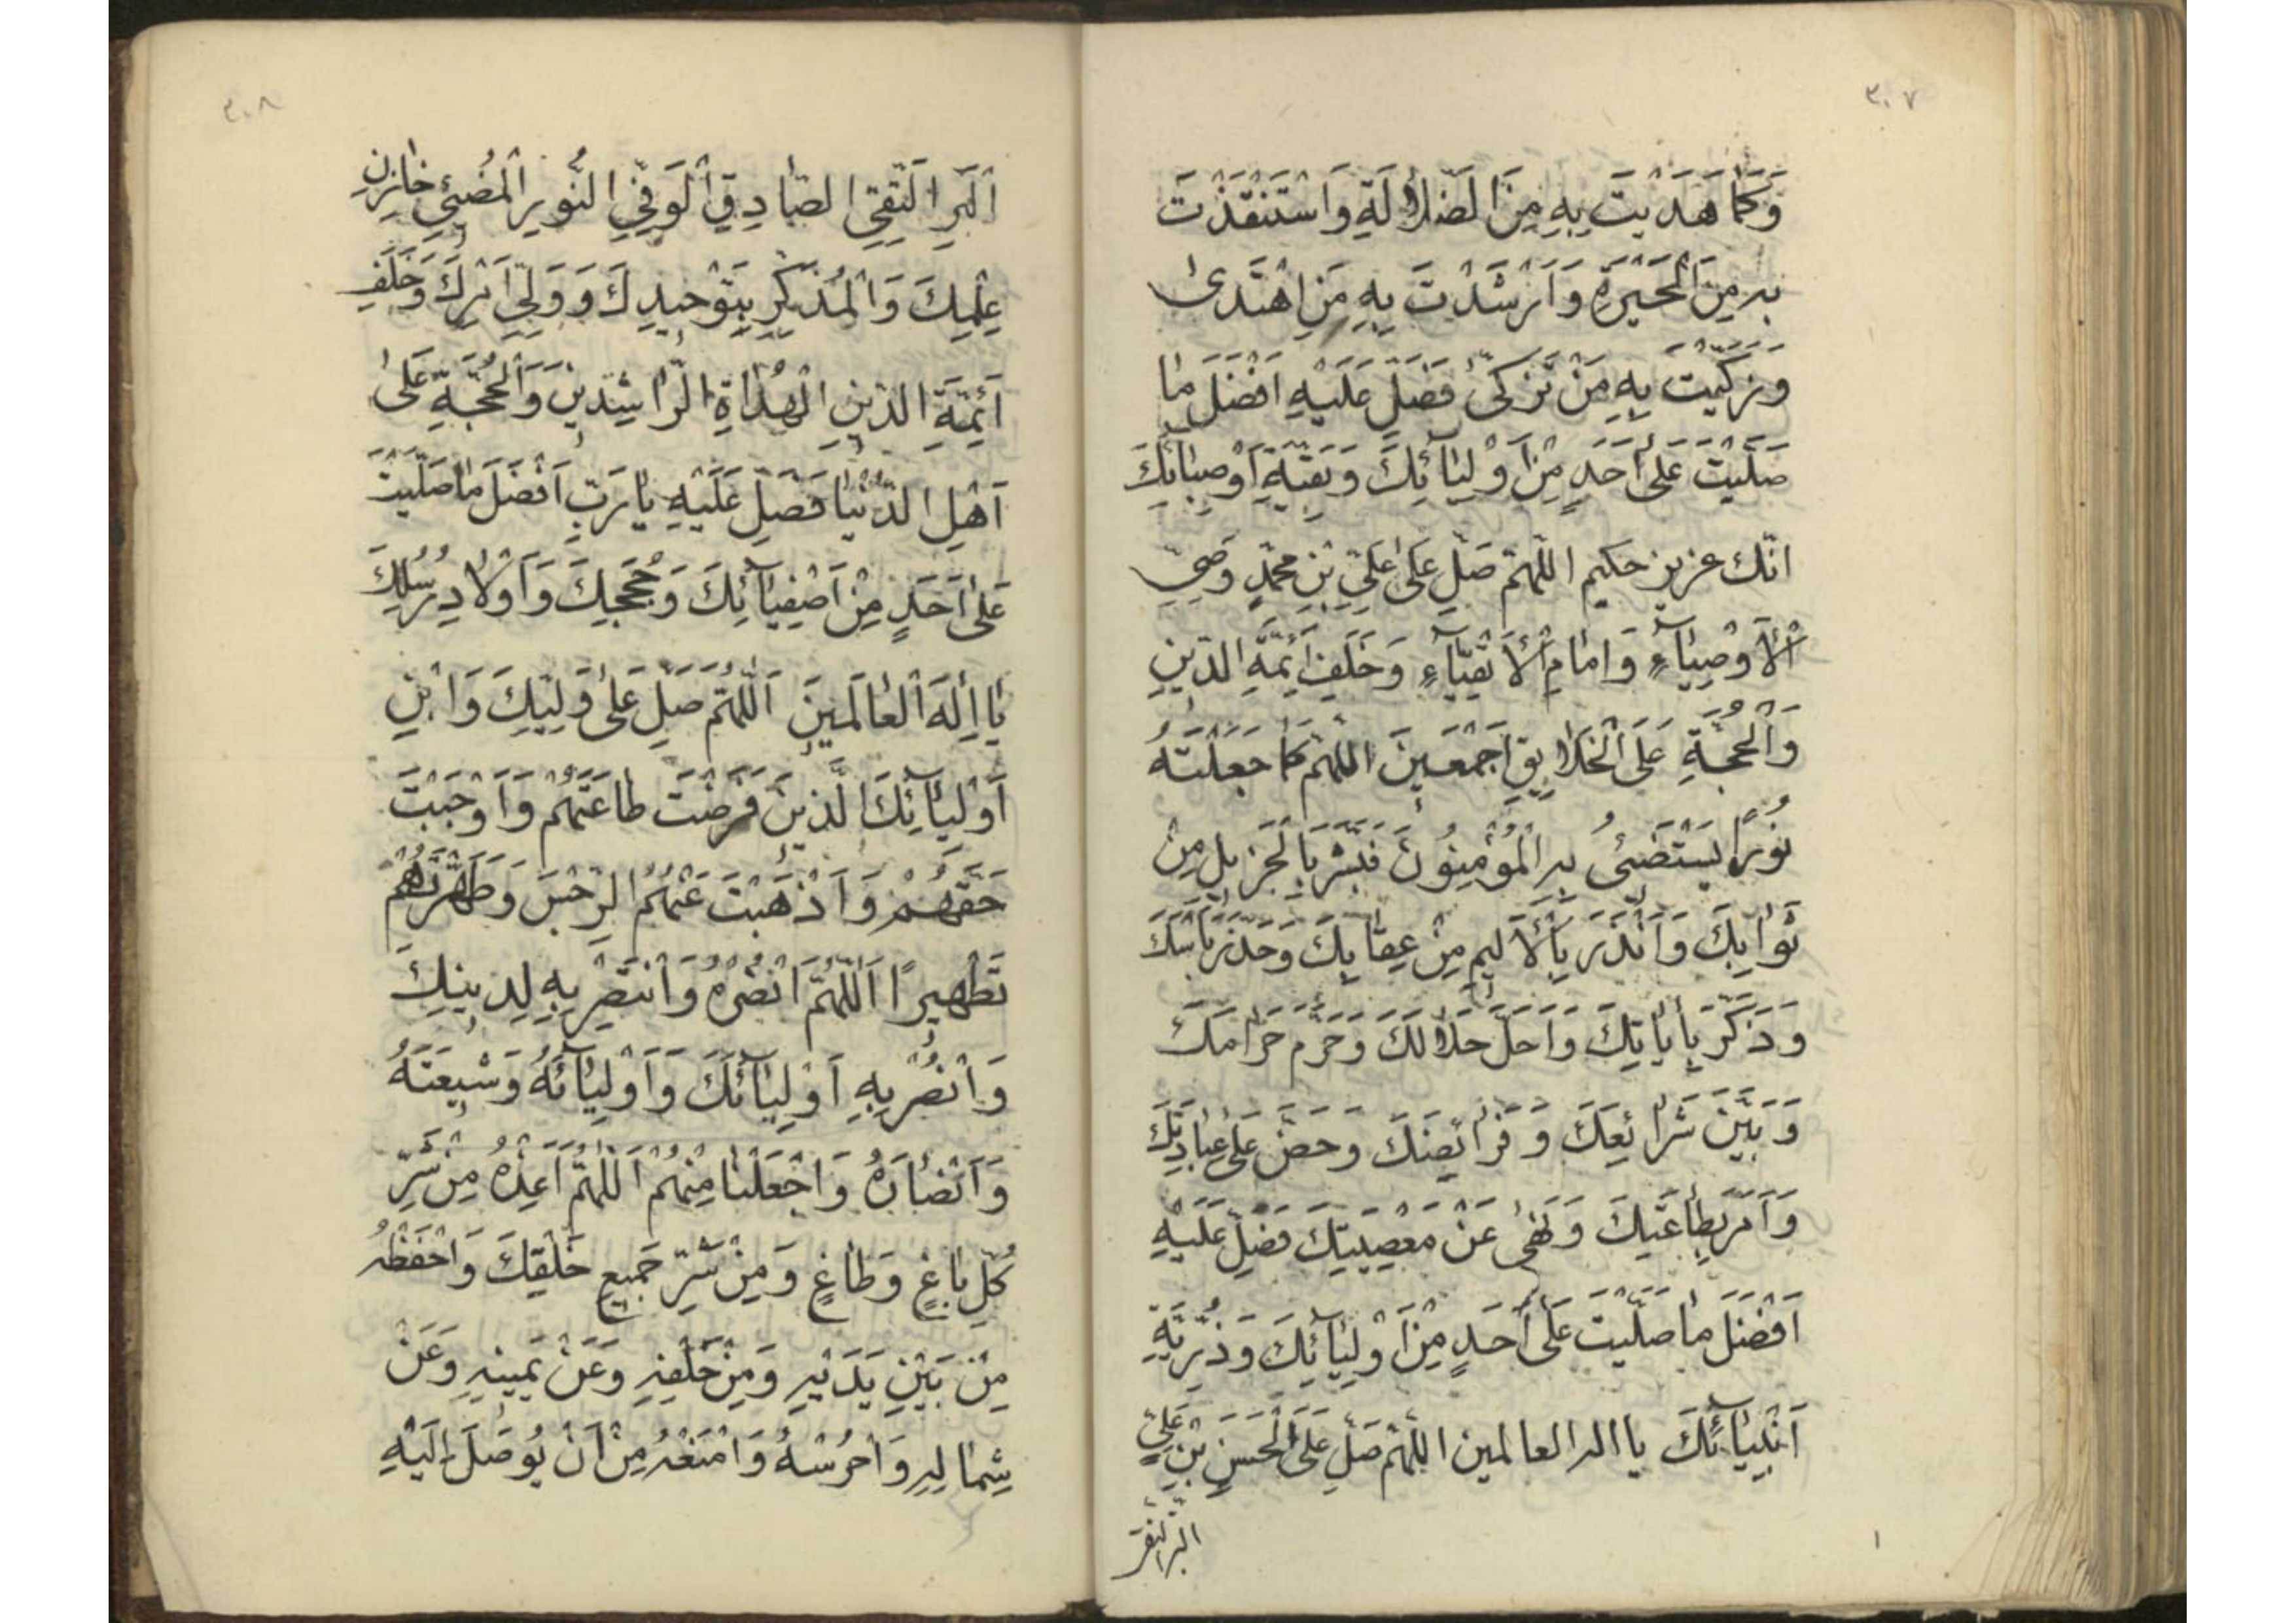 ٣٠٧
وَكَمَا هَدَيْتَ بِهِ مِنَ الضَّلَالَةِ وَاسْتَنْقَذْتَ
بِهِ مِنَ الْحَيْرَةِ وَاَرْشَدْتَ بِهِ مَنِ اهْتَدىٰ
وَزَكَّيْتَ بِهِ مَنْ تَزَكّىٰ فَصَلِّ عَلَيْهِ اَفْضَلَ مٰا
صَلَّيْتَ عَلىٰ اَحَدٍ مِنْ اَوْلِيٰآئِكَ وَبَقِيَّةِ اَوْصِيٰائِكَ
انّك عزيز حكيم اللّهمّ صَلِّ عَلىٰ عَلِيِّ بْنِ مُحَمَّدٍ وَصِيِّ
الْاَوْصِيٰآءِ وَاِمٰامِ الْاَتْقِيٰآءِ وَخَلَفِ اَئِمَّةِ الدّينِ
وَالْحُجَّةِ عَلَى الْخَلٰايِقِ اَجْمَعينَ اللّهمّ كَمٰا جَعَلْتَهُ
نُورًا يَسْتَضيٓئُ بِهِ الْمُؤْمِنُونَ فَبَشَّرَ بِالْجَزيلِ مِنْ
ثَوٰابِكَ وَاَنْذَرَ بِالْاَليمِ مِنْ عِقٰابِكَ وَحَذَّرَ بَاْسَكَ
وَذَكَّرَ بِاٰيٰاتِكَ وَاَحَلَّ حَلٰالَكَ وَحَرَّمَ حَرٰامَكَ
وَبَيَّنَ شَرٰائِعَكَ وَفَرٰائِضَكَ وَحَضَّ عَلىٰ عِبٰادَتِكَ
وَاَمَرَ بِطٰاعَتِكَ وَنَهىٰ عَنْ مَعْصِيَتِكَ فَصَلِّ عَلَيْهِ
اَفْضَلَ مٰا صَلَّيْتَ عَلىٰ اَحَدٍ مِنْ اَوْلِيٰآئِكَ وَذُرِّيَّةِ
اَنْبِيٰآئِكَ يا اله العالمين اللّهمّ صَلِّ عَلَى الْحَسَنِ بْنِ عَلِيٍّ
البرّ التقى
٣٠٨
اَلْبَرِّ التَّقِيِّ الصّٰادِقِ الْوَفِيِّ النُّورِ الْمُضيئِ خٰازِنِ
عِلْمِكَ وَالْمُذَكِّرِ بِتَوْحيدِكَ وَوَلِيِّ اَمْرِكَ وَخَلَفِ
اَئِمَّةِ الدّينِ الْهُدٰاةِ الرّٰاشِدينَ وَالْحُجَّةِ عَلىٰ
اَهْلِ الدُّنْيٰا فَصَلِّ عَلَيْهِ يٰا رَبِّ اَفْضَلَ مٰا صَلَّيْتَ
عَلىٰ اَحَدٍ مِنْ اَصْفِيٰآئِكَ وَحُجَجِكَ وَاَوْلٰادِ رُسُلِكَ
يٰا اِلٰهَ الْعٰالَمينَ اَللّٰهُمَّ صَلِّ عَلىٰ وَلِيِّكَ وَابْنِ
اَوْلِيٰآئِكَ الَّذينَ فَرَضْتَ طٰاعَتَهُمْ وَاَوْجَبْتَ
حَقَّهُمْ وَاَذْهَبْتَ عَنْهُمُ الرِّجْسَ وَطَهَّرْتَهُمْ
تَطْهيرًا اَللّٰهُمَّ انْصُرْهُ وَانْتَصِرْ بِهِ لِدينِكَ
وَانْصُرْ بِهِ اَوْلِيٰآئَكَ وَاَوْلِيٰآئَهُ وَشيعَتَهُ
وَاَنْصٰارَهُ وَاجْعَلْنٰا مِنْهُمْ اَللّٰهُمَّ اَعِذْهُ مِنْ شَرِّ
كُلِّ بٰاغٍ وَطٰاغٍ وَمِنْ شَرِّ جَميعِ خَلْقِكَ وَاحْفَظْهُ
مِنْ بَيْنِ يَدَيْهِ وَمِنْ خَلْفِهِ وَعَنْ يَمينِهِ وَعَنْ
شِمٰالِهِ وَاحْرُسْهُ وَامْنَعْهُ مِنْ اَنْ يُوصَلَ اِلَيْهِ